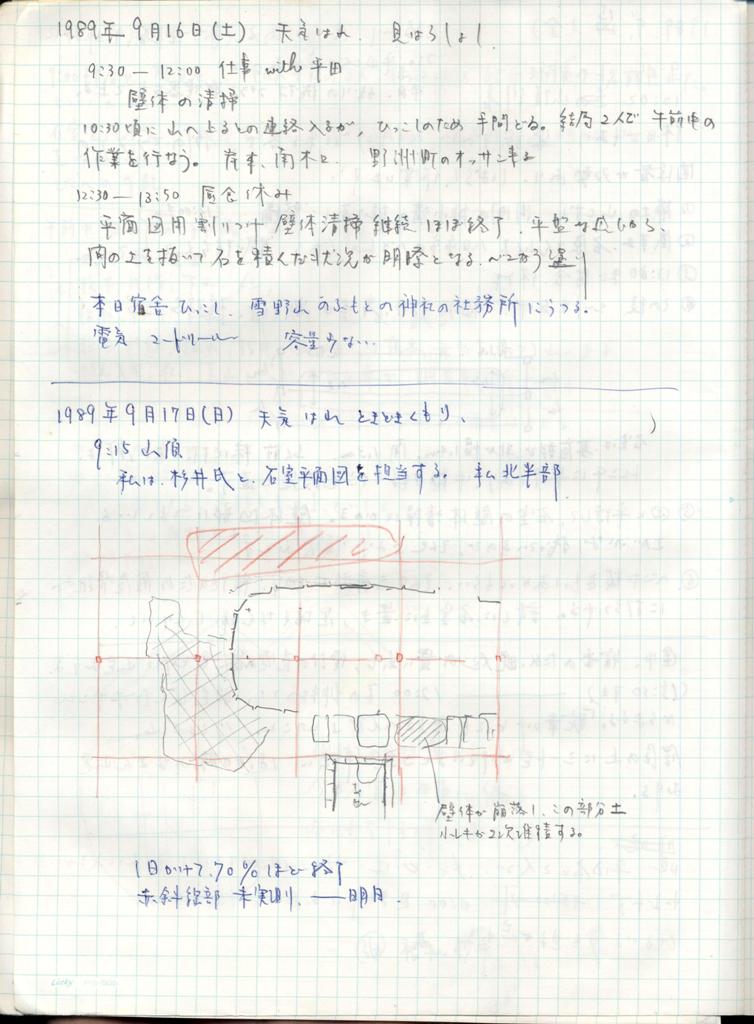 1989年9月16日(土) 天気はれ. 見はらしよし.
9:30 — 12:00 仕事 with 平田
壁体の清掃
10:30頃に山へ上るとの連絡入るが, ひっこしのため手間どる。結局2人で午前中の
作業を行なう。 南木と 野洲町のオッサン来る
12:30 — 13:50 昼食休み
平面図用割りつけ 壁体清掃継続 ほぼ終了.
の上を抜いて石を積んだ状況が明瞭となる.
本日宿舎ひっこし. 雪野山のふもとの神社の社務所にうつる.
電気 コードリール 容量少ない..
1989年9月17日(日) 天気 はれ ときどきくもり.
9:15 山頂
私は, 杉井氏と, 石室平面図を担当する. 私北半部
壁体が崩落し, この部分土
小レキが2次堆積する.
1日かけて, 70%ほど終了
赤斜線部 未実測. — 明日.
Lucky